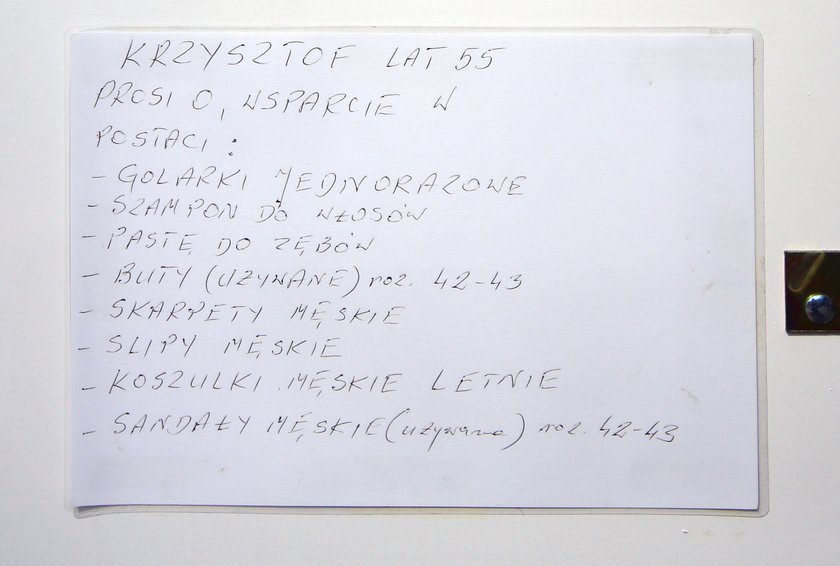 KRZYSZTOF LAT 55
PROSI O, WSPARCIE W
POSTACI:
- GOLARKI JEDNORAZOWE
- SZAMPON DO WŁOSÓW
- PASTĘ DO ZĘBÓW
- BUTY (UŻYWANE) roz. 42-43
- SKARPETY MĘSKIE
- SLIPY MĘSKIE
- KOSZULKI MĘSKIE LETNIE
- SANDAŁY MĘSKIE (używane) roz. 42-43